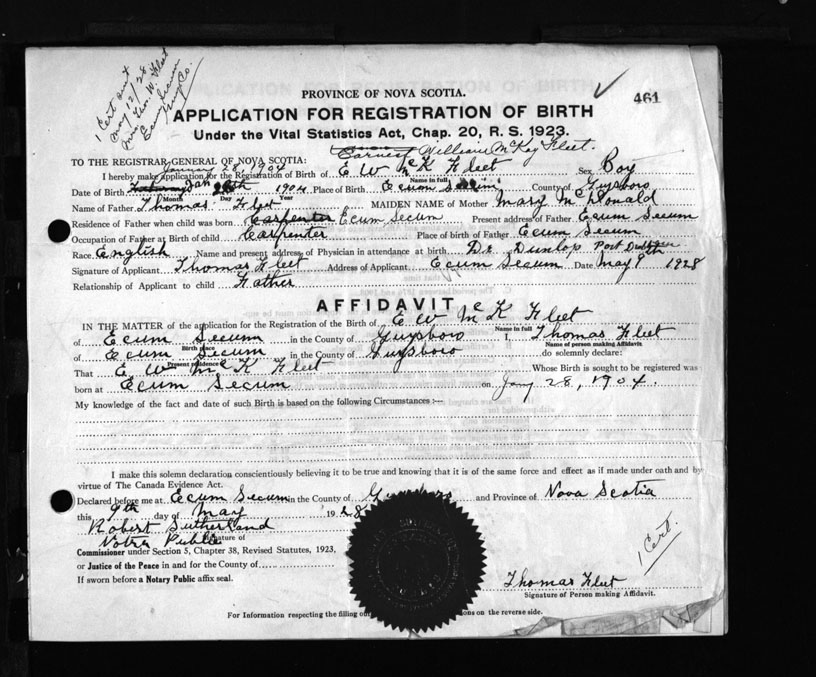 1 Cert
May 12/28
Mrs. Thos. W. Fleet
Ecum Secum
Guys Co.
PROVINCE OF NOVA SCOTIA.
461
APPLICATION FOR REGISTRATION OF BIRTH
Under the Vital Statistics Act, Chap. 20, R. S. 1923.
Earnest William McKay Fleet.
TO THE REGISTRAR-GENERAL OF NOVA SCOTIA:
January 28, 1904
I hereby make application for the Registration of Birth of E W McK Fleet Sex Boy
Name in full
Date of Birth Jan 28th 1904 Place of Birth Ecum Secum County of Guysboro
Month Day Year
Name of Father Thomas Fleet MAIDEN NAME of Mother Mary McDonald
Residence of Father when child was born Carpenter Ecum Secum Present address of Father Ecum Secum
Occupation of Father at Birth of child Carpenter Place of birth of Father Ecum Secum
Race English Name and present address of Physician in attendance at birth Dr Dunlop Port
Signature of Applicant Thomas Fleet Address of Applicant Ecum Secum Date May 9th 1928
Relationship of Applicant to child Father
AFFIDAVIT
IN THE MATTER of the application for the Registration of the Birth of E W McK Fleet
Name in full
of Ecum Secum in the County of Guysboro I, Thomas Fleet
Birth place Name of person making Affidavit
of Ecum Secum in the County of Guysboro do solemnly declare:
Present residence
That E W McK Fleet Whose Birth is sought to be registered was
born at Ecum Secum on Jany 28, 1904.
My knowledge of the fact and date of such Birth is based on the following Circumstances :—
I make this solemn declaration conscientiously believing it to be true and knowing that it is of the same force and effect as if made under oath and by
virtue of The Canada Evidence Act.
Declared before me at Ecum Secum in the County of Guysboro and Province of Nova Scotia
this 9th day of May 1928
Robert Sutherland
Notra Public
Signature of
Commissioner under Section 5, Chapter 38, Revised Statutes, 1923,
or Justice of the Peace in and for the County of
1 Cert.
If sworn before a Notary Public affix seal.
Thomas Fleet
Signature of Person making Affidavit.
For Information respecting the filling out ons on the reverse side.